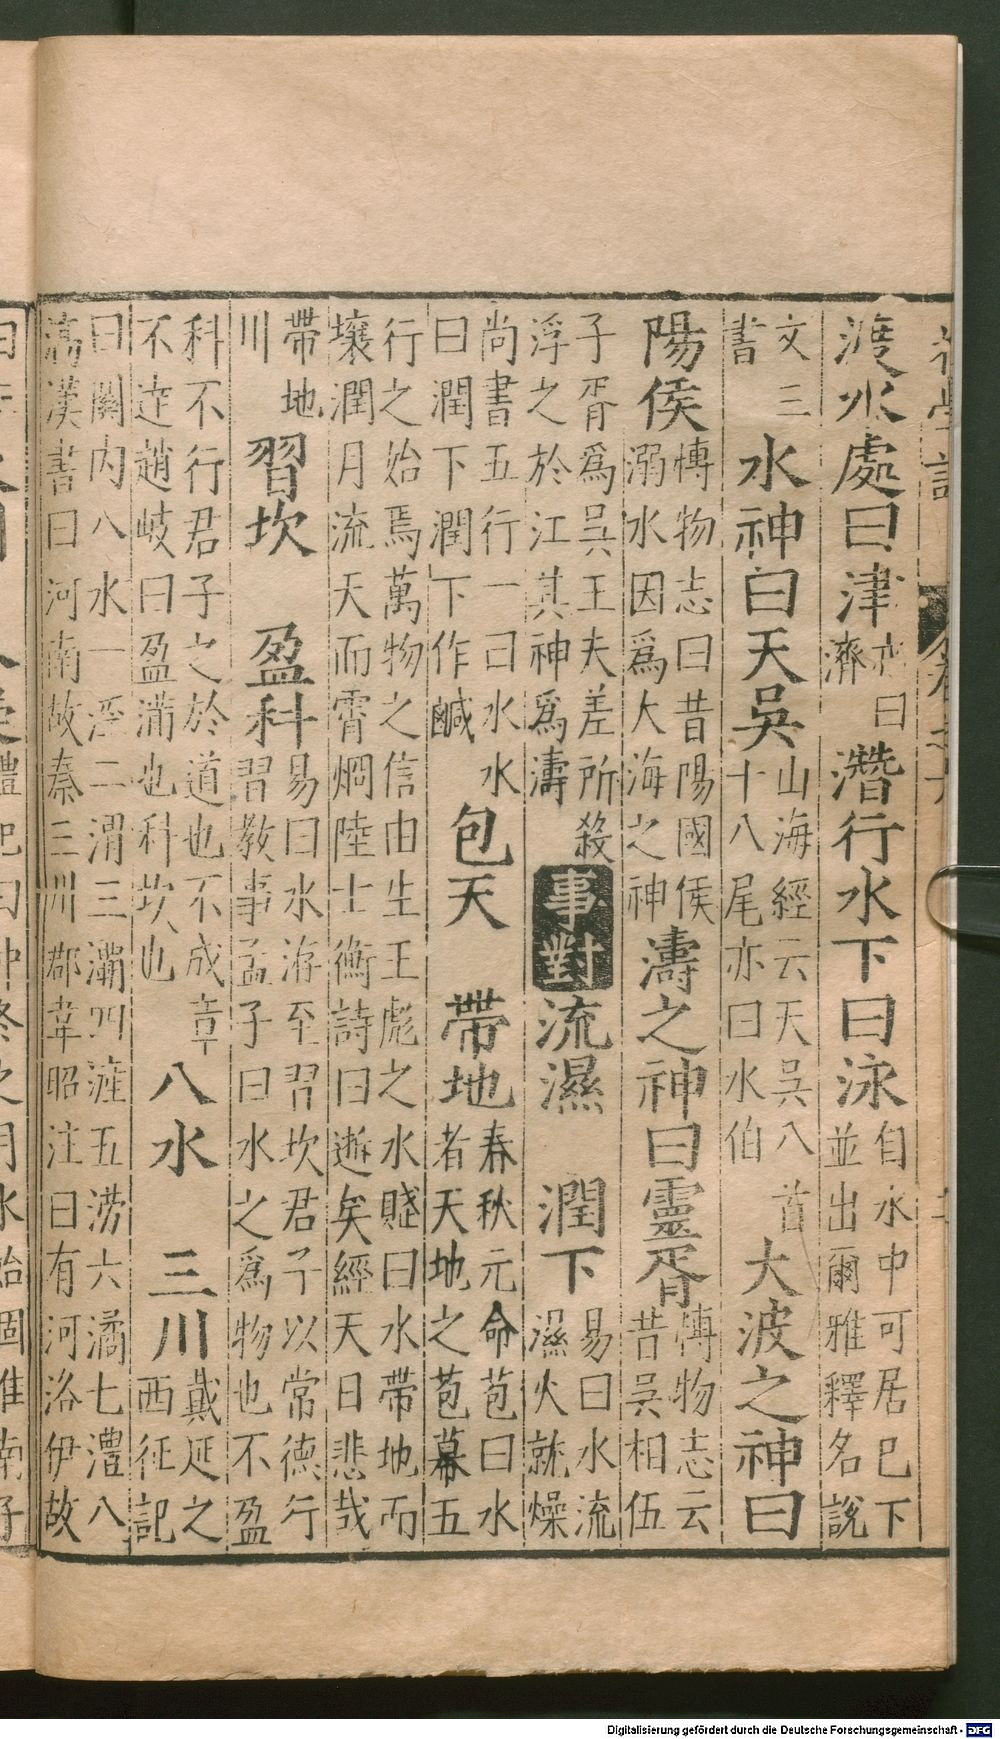 渡水處曰津亦曰濟潛行水下曰泳自水中可居巳下並出爾雅釋名說
文三書水神曰天吳山海經云天吳八首十八尾亦曰水伯大波之神曰
陽侯博物志曰昔陽國侯溺水因爲大海之神濤之神曰靈胥博物志云昔吳相伍
子胥爲吳王夫差所殺浮之於江其神爲濤事對流濕 潤下易曰水流濕火就燥
尚書五行一曰水水曰潤下潤下作鹹包天 帶地春秋元命苞曰水者天地之苞幕五
行之始焉萬物之信由生王彪之水賤曰水帶地而壤潤月流天而霄烱陸士衡詩曰逝矣經天日悲哉
帶地川習坎 盈科易曰水洊至習坎君子以常德行習教事孟子曰水之爲物也不盈
科不行君子之於道也不成章不迏趙岐曰盈滿也科坎也八水 三川戴延之西征記
曰關内八水一涇二渭三灞四漄五澇六潏七灃八滈漢書曰河南故秦三川郡韋昭注曰有河洛伊故
Digitalisierung gefördert durch die Deutsche Forschungsgemeinschaft - DFG